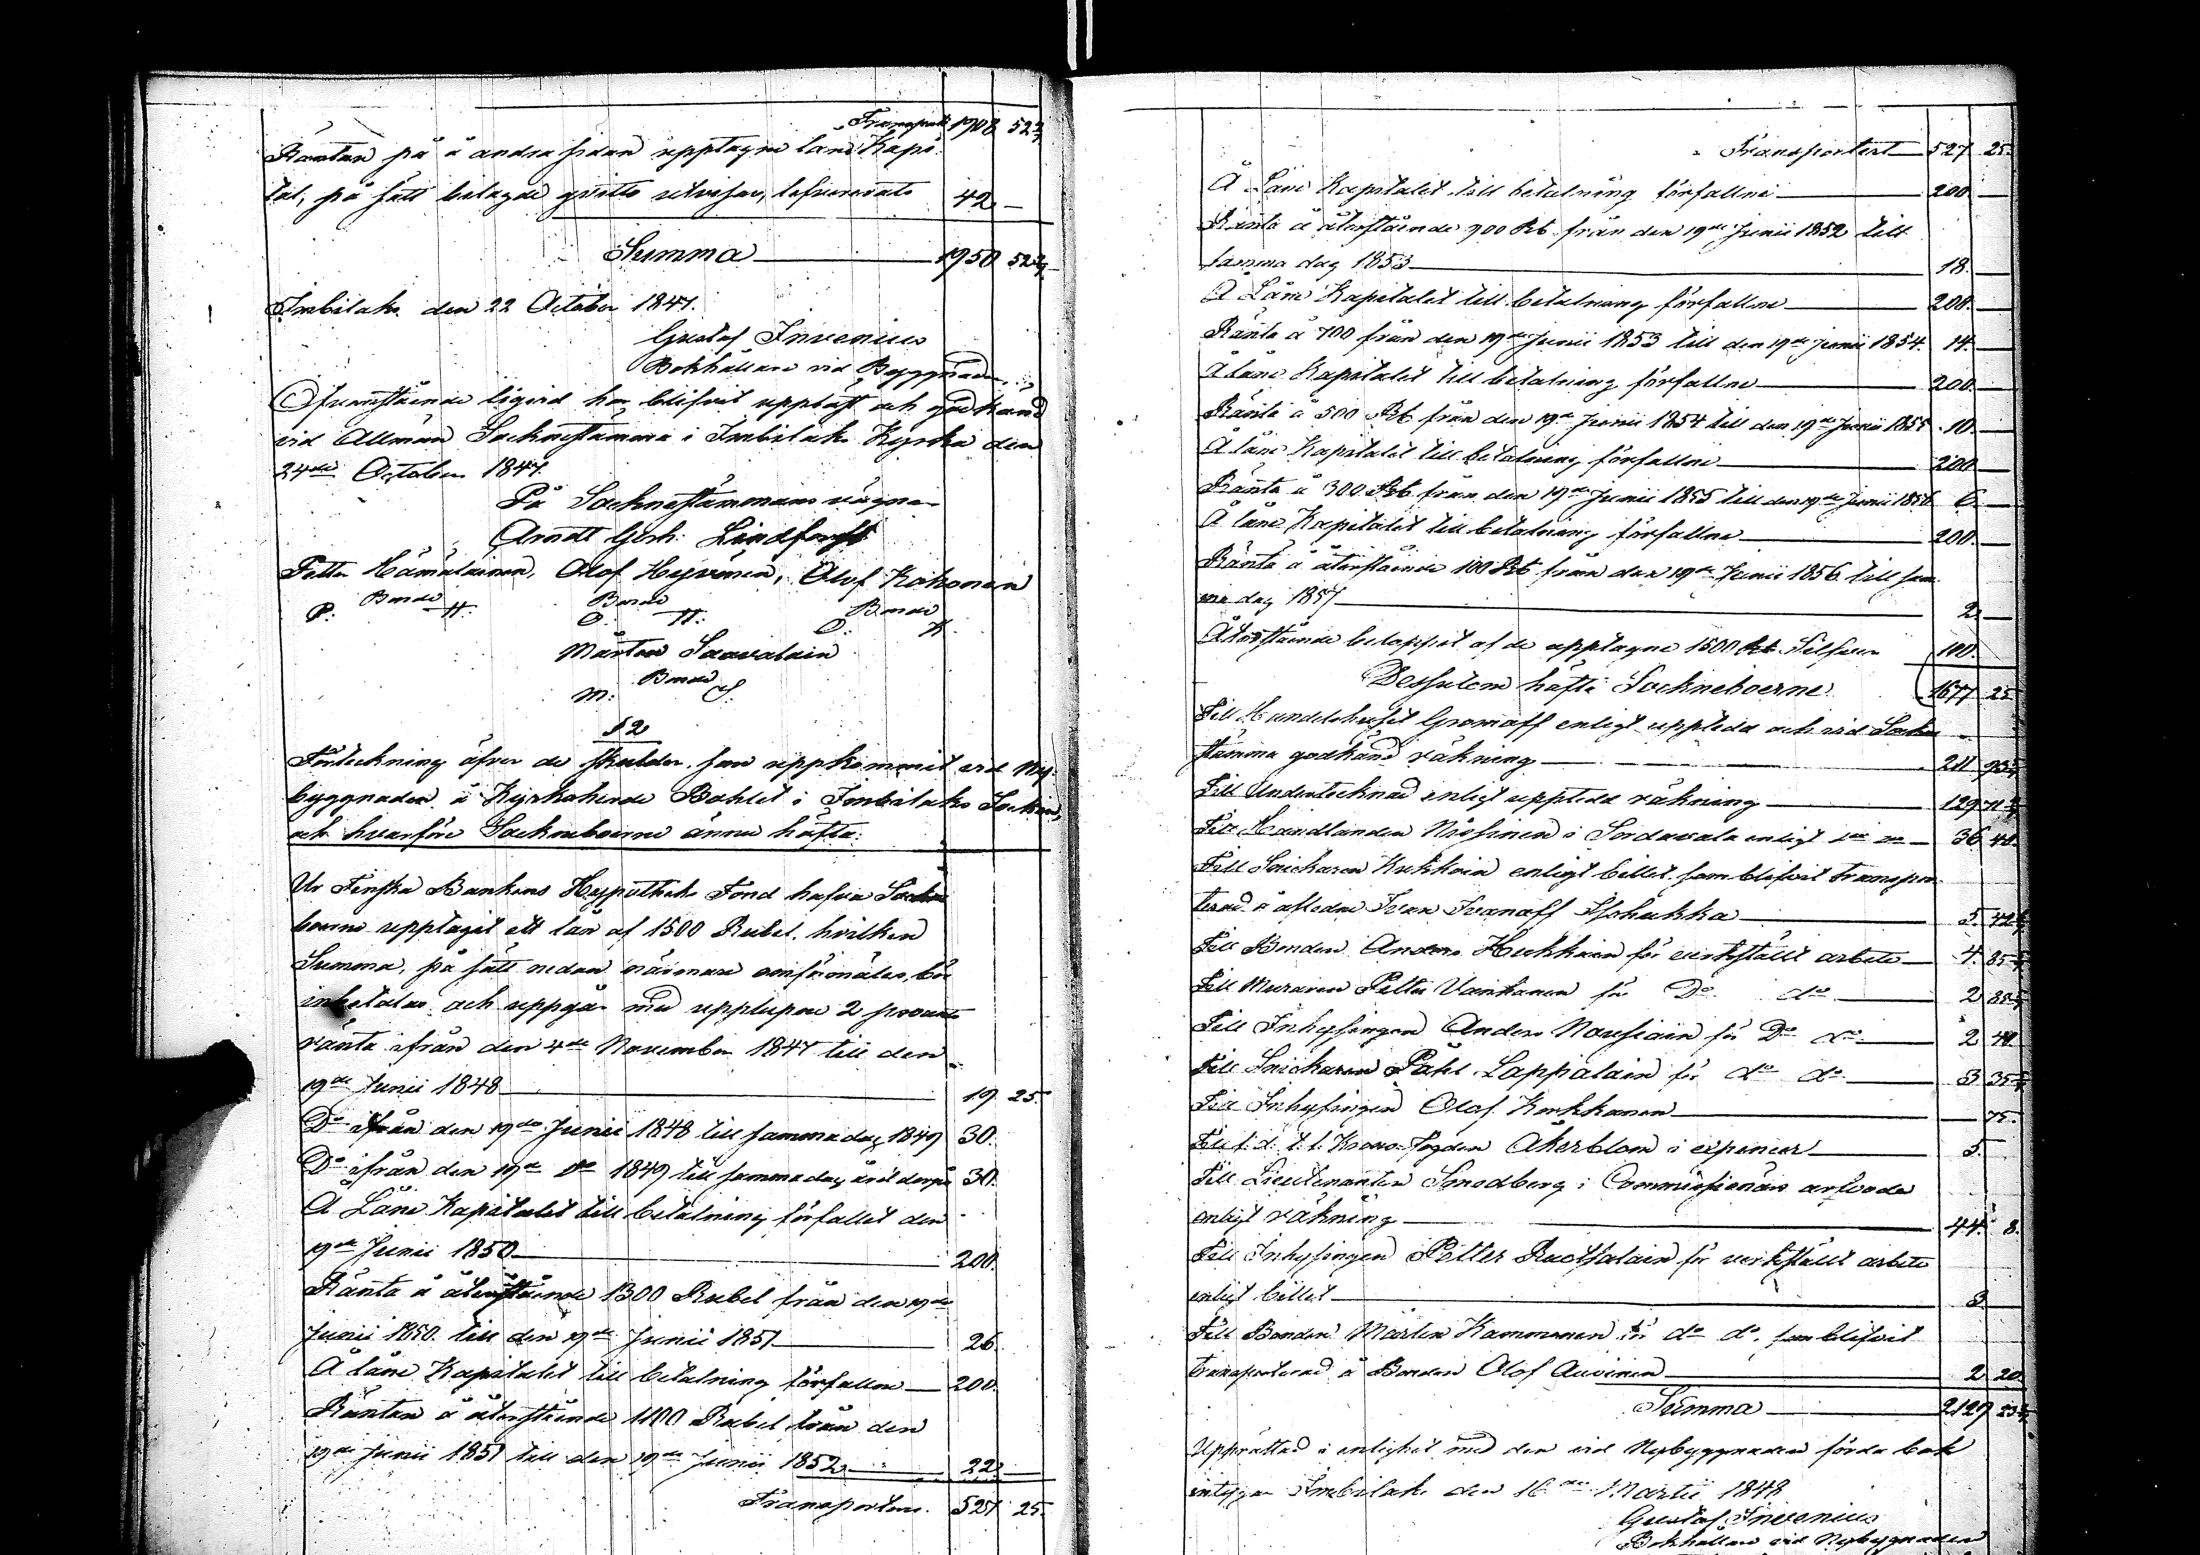 Transport 1908 52 2/7
Räntan på å andra sidan upptagne låne Kapi-
tal, på sätt bilagde qvitto utvisar,
42 —
Summa 1950 52 2/7
Imbilaks den 22 October 1847.
Gustaf Invenius
Bokhållare vid Byggnaden
Ofvanstående liqvid har blifvit uppläst och godkänd
vid Allmän Socknestämma i Imbilaks Kyrka den
24de October 1847.
På Socknestämmans vägnar
Arndt Gerh. Lindforss
Petter Hämäläinen, Olof Hyvönen, Olof Kokonen
Bonde Bonde Bonde
P. H. O. H. O. K.
Mårten Saavalain
Bonde
M: S.
§ 2
Förteckning öfver de skulder som uppkommit vid Ny-
byggnaden å Kyrkoherde Bohlet i Imbilaks Socken,
och hvarföre Sockneboerne ännu häfta:
Ur Finska Bankens Hypotheks Fond hafva Sockne
boerne upptagit ett lån af 1500 Rubel, hvilken
Summa, på sätt nedan närmare omförmäles, bör
inbetalas och uppgår med upplupen 2 procents
ränta ifrån den 4de November 1847 till den
19de Junii 1848 19 25.
Do ifrån den 19de Junii 1848 till samma dag 1849 30.
Do ifrån den 19de do 1849 till samma dag året derpå 30.
Å Låne Kapitalet till betalning förfallet den
19de Junii 1850 200.
Ränta å återstående 1300 Rubel från den 19de
Junii 1850 till den 19de Junii 1851 26.
Å låne Kapitalet till betalning förfallne 200.
Räntan å återstående 1100 Rubel från den
19de Junii 1851 till den 19de Junii 1852 22.
Transporteras 527 25.
Transportert 527 25.
Å Låne Kapitalet till betalning förfallne 200.
Ränta å återstående 900 Rb. från den 19de Junii 1852 till
samma dag 1853 18.
Å Låne Kapitalet till betalning förfallne 200.
Ränta å 700 från den 19de Junii 1853 till den 19de Junii 1854. 14.
Å låne Kapitalet till betalning förfallne 200.
Ränta å 500 Rb. från den 19de Junii 1854 till den 19de Junii 1855 10.
Å låne Kapitalet till betalning förfallne 200
Ränta å 300 Rb. från den 19de Junii 1855 till den 19de Junii 1856 6.
Å låne Kapitalet till betalning förfallne 200.
Ränta å återstående 100 Rb. från den 19de Junii 1856 till sam-
ma dag 1857 2.
Återstående beloppet af de upptagne 1500 Rb. Silfver 100.
Dessutom häfta Sockneboerne 1677 25
Till Handelshuset Gromoff enligt upptedd och vid Sockne
stämma godkänd räkning 211
Till Undertecknad enligt upptedd räkning 129
Till Handlanden Nissinen i Sordavala enligt do do 36 40.
Till Snickaren Kukkoin enligt billet som blifvit transpor-
terad å afledne Ivan Ivanoff 5.
Till Bonden Anders Hukkain för verkställt arbete 4.
Till Muraren Petter Vankanen för Do do 2
Till Inhysingen Anders Nousiain för Do do 2 40.
Till Snickaren Påhl Lappalain för do do 3
Till Inhysingen Olof Korkkanen 75.
Till f. d. t. f. Krono-fogden Åkerblom i expencer 5.
Till Lieutenanten Smedberg i Commissionärs arfvode
enligt räkning 44. 8.
Till Inhysingen Petter Ruotsalain för verkställt arbete
enligt billet 3
Till Bonden Mårten Kammonen för do do, som blifvit
transporterad å Bonden Olof Auvinen 2 20
Summa 2129
Upprättad i enlighet med den vid Nybyggnaden förda bok
intygar Imbilaks den 16de Martii 1848
Gustaf Invenius
Bokhållare vid Nybyggnaden